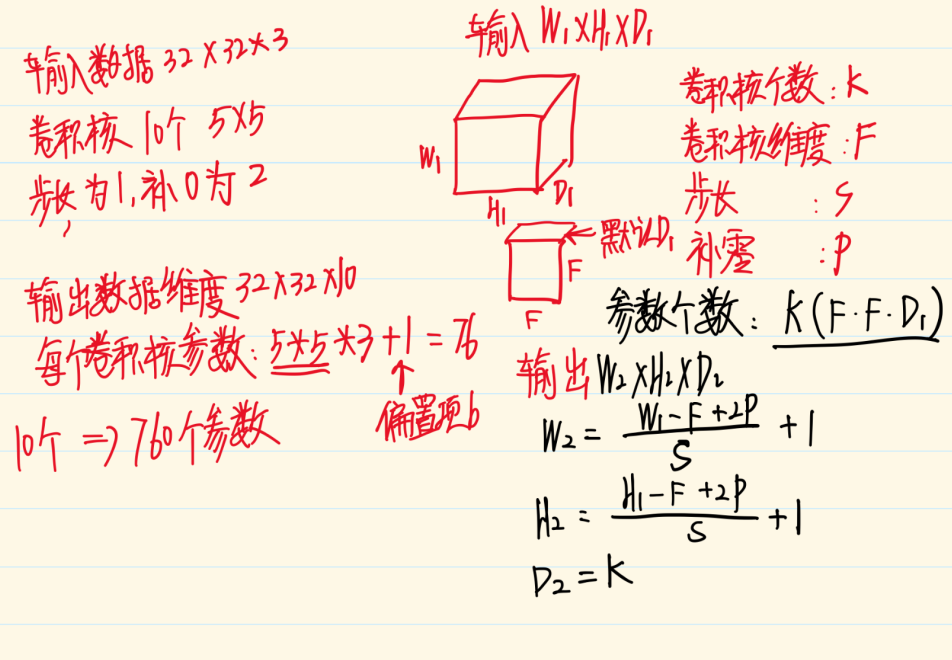 输入数据 32×32×3
卷积核 10个 5×5
步长为1,补0为2
输出数据维度32×32×10
每个卷积核参数:5×5×3+1=76
偏置项b
10个 => 760个参数
输入 W₁×H₁×D₁
W₁
H₁
D₁
默认D₁
F
F
卷积核个数:K
卷积核维度:F
步长 :S
补零 :P
参数个数:K(F·F·D₁)
输出W₂×H₂×D₂
W₂ = (W₁-F+2P)/S +1
H₂ = (H₁-F+2P)/S +1
D₂=K